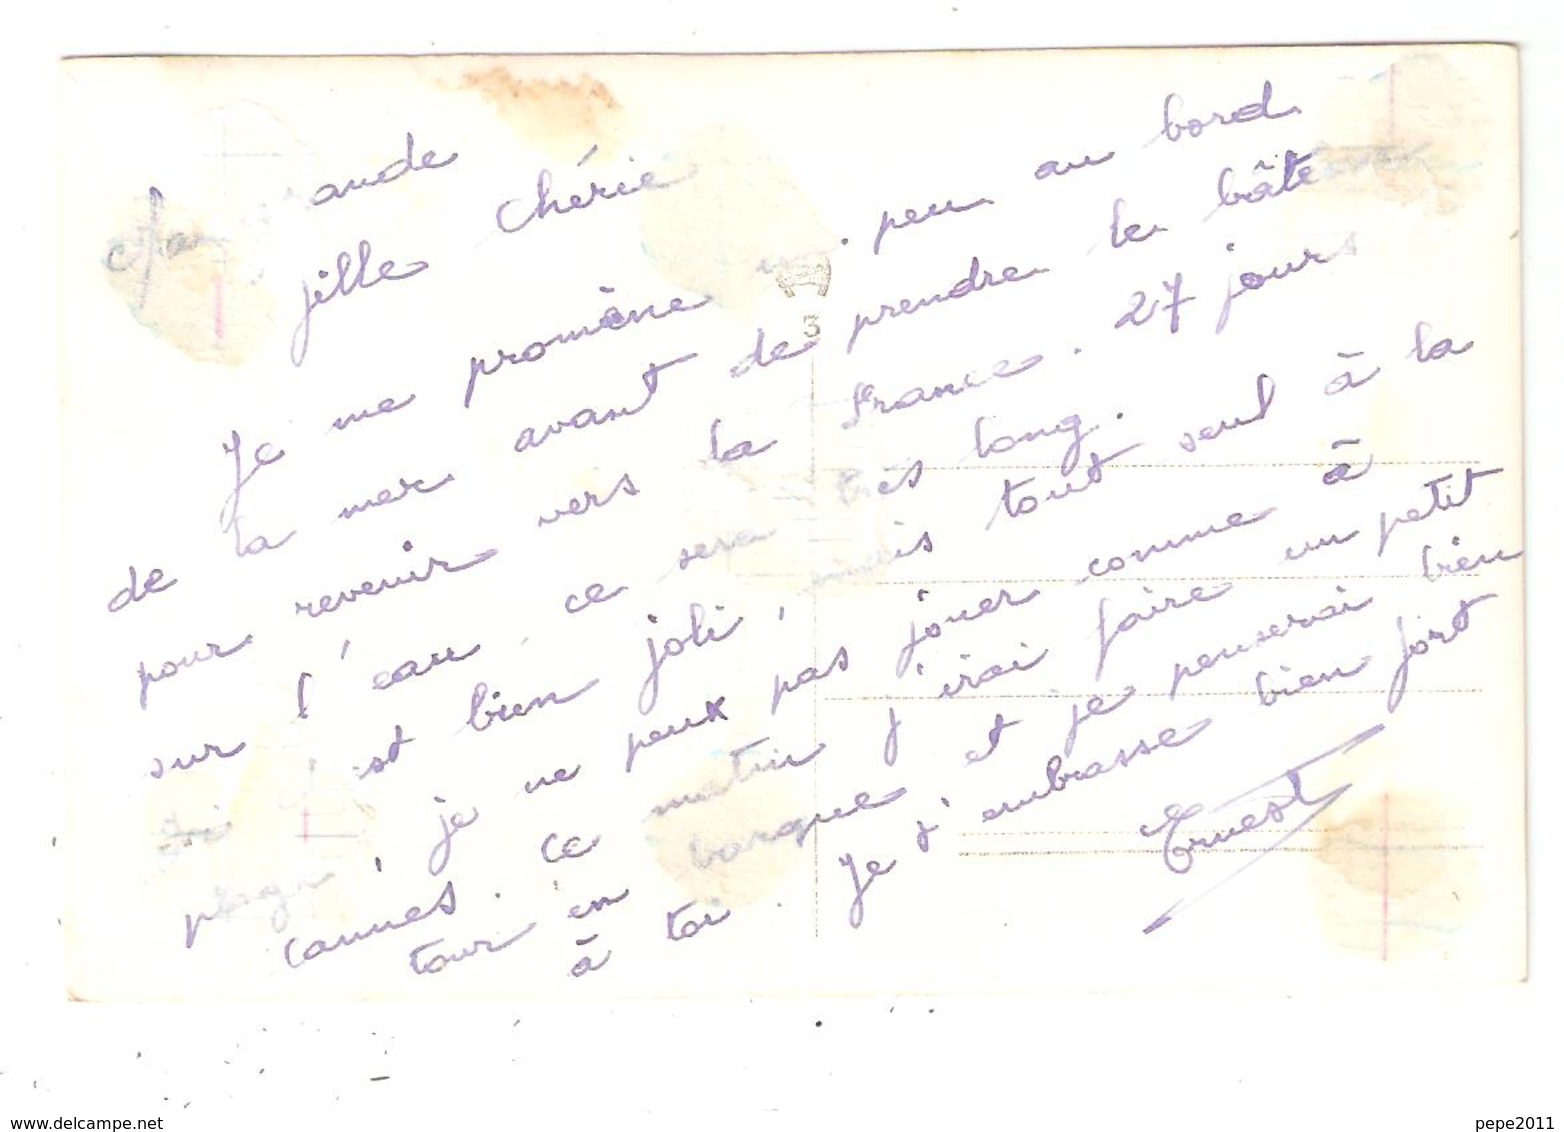 Ma grande
fille chérie
Je me promène un peu au bord
de la mer avant de prendre le bâteau
pour revenir vers la France. 27 jours
sur l'eau ce sera très long.
Ici c'est bien joli, mais tout seul à la
plage, je ne peux pas jouer comme à
Cannes. Ce matin j'irai faire un petit
tour en barque et je penserai bien
à toi. Je t'embrasse bien fort
Ernest
3
www.delcampe.net
pepe2011